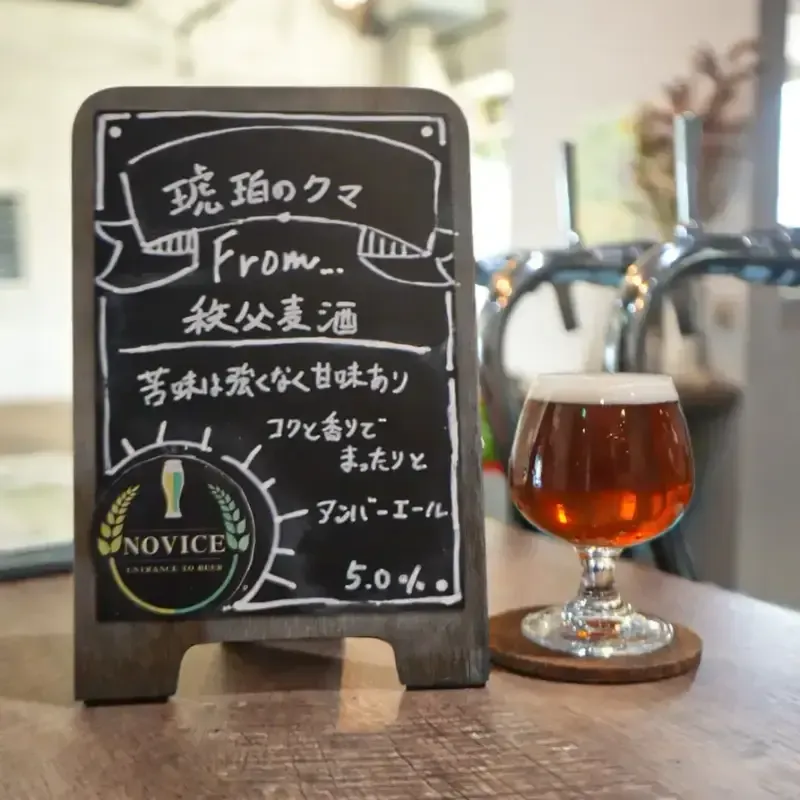 琥珀のクマ
From...
秩父麦酒
苦味は強くなく甘味あり
コクと香りで
まったりと
アンバーエール
5.0%
NOVICE
ENTRANCE TO BEER